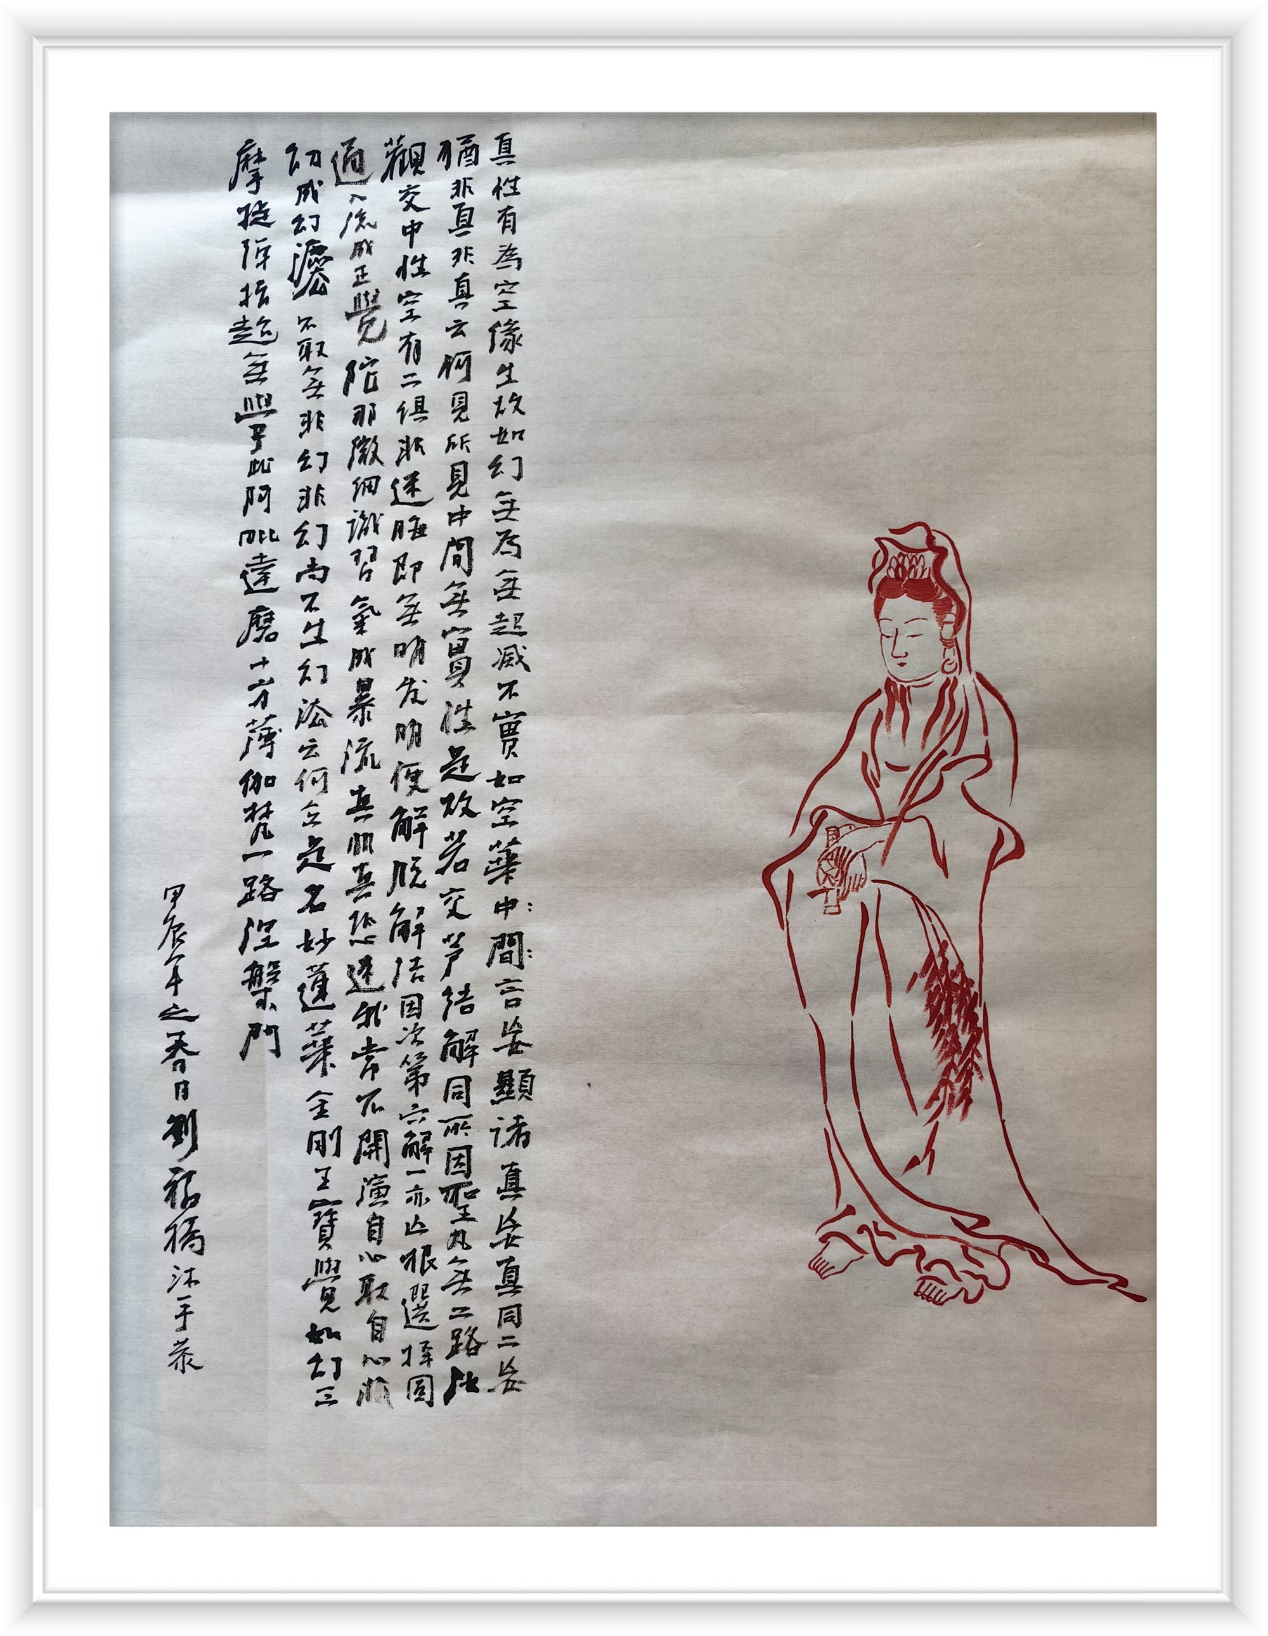 真性有為空緣生故如幻無為無起滅不實如空華中間言妄顯諸真妄真同二妄
猶非真非真云何見所見中間無實性是故若交芦結解同所因聖凡無二路汝
觀交中性空有二俱非迷晦即無明发明便解脫解結因次第六解一亦亡根選擇圓
通入流成正覺陀那微細識習氣成暴流真非真恐迷我常不開演自心取自心非
幻成幻灋不取無非幻非幻尚不生幻法云何立是名妙蓮華金剛王寶覺如幻三
摩提彈指超無學此阿毗達磨十方薄伽梵一路涅槃門
甲辰年之春日劉福橋沐手恭